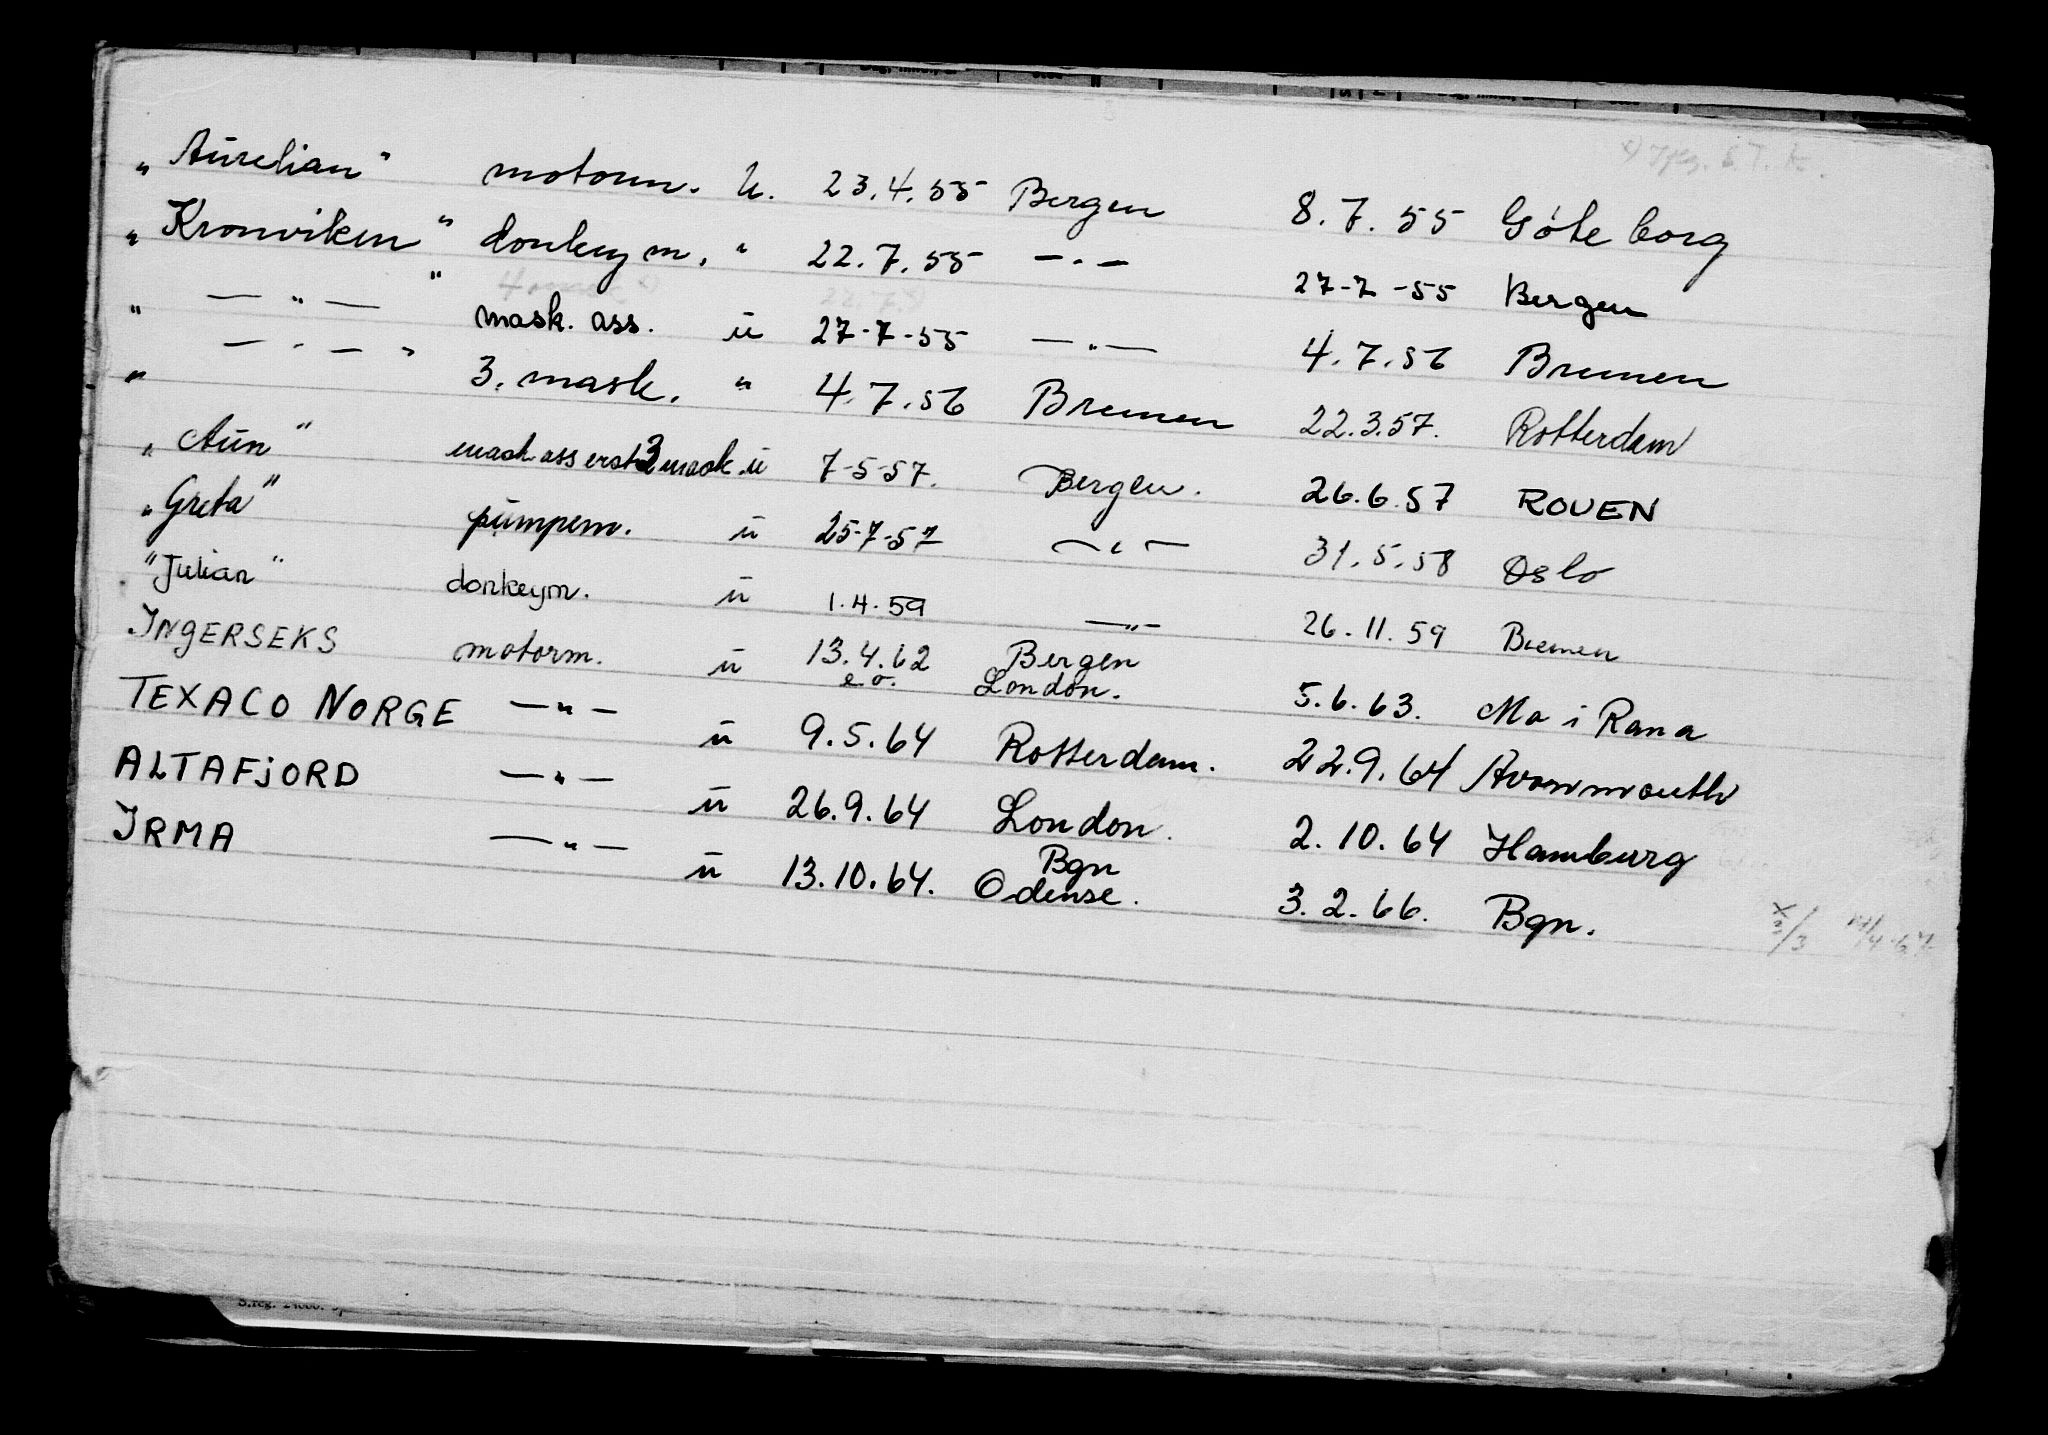 „Aurelian" motorm. u. 23.4.55 Bergen 8.7.55 Göteborg
„Kronviken" donkeym. " 22.7.55 —〃— 27-7-55 Bergen
" —〃— " mask. ass. u 27-7-55 —〃— 4.7.56 Bremen
" —〃— " 3. mask. " 4.7.56 Bremen 22.3.57. Rotterdam
„Aun" mask ass erst 3 mask u 7-5-57. Bergen. 26.6.57 ROUEN
„Greta" pumpem. u 25-7-57 —〃— 31.5.58 Oslo
"Julian" donkeym. u 1.4.59 —〃— 26.11.59 Bremen
INGERSEKS motorm. u 13.4.62 Bergen
e.o. London. 5.6.63. Mo i Rana
TEXACO NORGE —〃— u 9.5.64 Rotterdam. 22.9.64 Avonmouth
ALTAFJORD —〃— u 26.9.64 London. 2.10.64 Hamburg
IRMA —〃— u 13.10.64. Bgn
Odense. 3.2.66. Bgn.
S.reg. 24000.